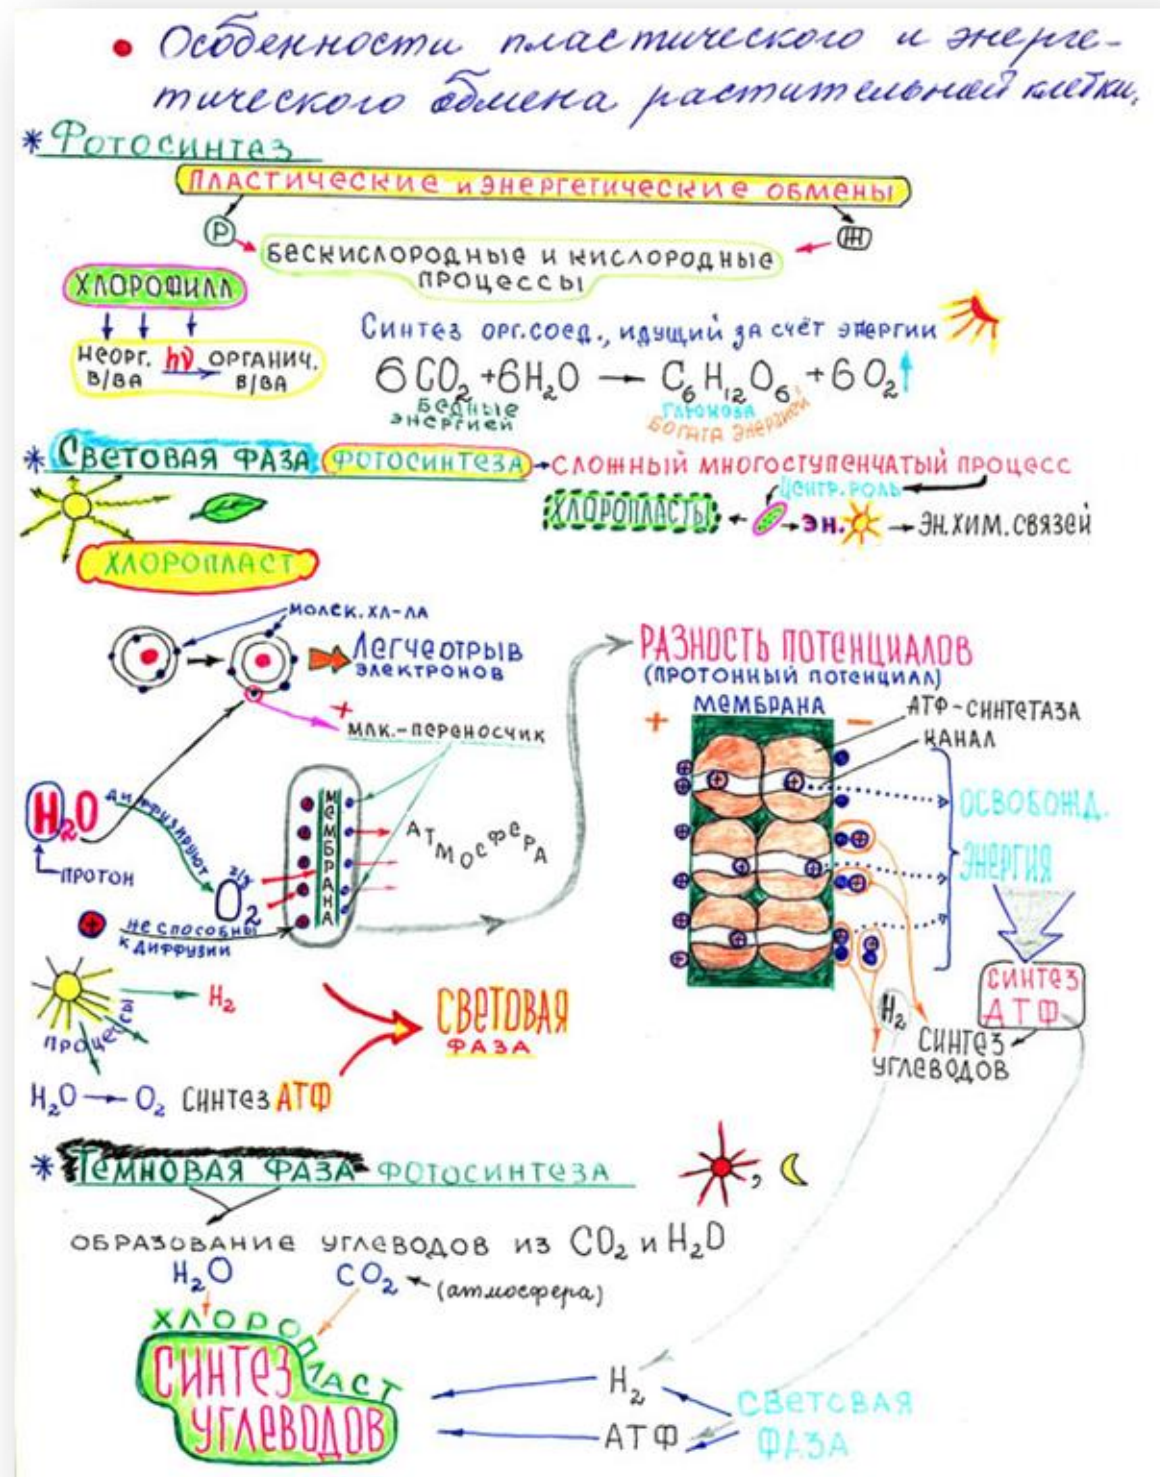 • Особенности пластического и энерге-
тического обмена растительной клетки.
* Фотосинтез
ПЛАСТИЧЕСКИЕ И ЭНЕРГЕТИЧЕСКИЕ ОБМЕНЫ
Р
Ж
БЕСКИСЛОРОДНЫЕ И КИСЛОРОДНЫЕ
ПРОЦЕССЫ
ХЛОРОФИЛЛ
НЕОРГ. hν ОРГАНИЧ.
В/ВА В/ВА
СИНТЕЗ ОРГ.СОЕД., ИДУЩИЙ ЗА СЧЁТ ЭНЕРГИИ
6CO₂+6H₂O → C₆H₁₂O₆ +6O₂↑
БЕДНЫЕ
ЭНЕРГИЕЙ
ГЛЮКОЗА
БОГАТА ЭНЕРГИЕЙ
* СВЕТОВАЯ ФАЗА ФОТОСИНТЕЗА → СЛОЖНЫЙ МНОГОСТУПЕНЧАТЫЙ ПРОЦЕСС
ЦЕНТР. РОЛЬ
ХЛОРОПЛАСТЫ ← → ЭН. → ЭН.ХИМ.СВЯЗЕЙ
ХЛОРОПЛАСТ
МОЛЕК. ХЛ-ЛА
ЛЕГЧЕ ОТРЫВ
ЭЛЕКТРОНОВ
+
МЛК.-ПЕРЕНОСЧИК
H₂O
ПРОТОН
ДИФФУЗИРУЮТ
O₂
МЕМБРАНА
АТМОСФЕРА
+ НЕ СПОСОБНЫ
К ДИФФУЗИИ
РАЗНОСТЬ ПОТЕНЦИАЛОВ
(ПРОТОННЫЙ ПОТЕНЦИАЛ)
+ МЕМБРАНА −
АТФ-СИНТЕТАЗА
КАНАЛ
ОСВОБОЖД.
ЭНЕРГИЯ
СИНТЕЗ
АТФ
H₂
СИНТЕЗ
УГЛЕВОДОВ
→ H₂
ПРОЦЕССЫ
H₂O → O₂ СИНТЕЗ АТФ
СВЕТОВАЯ
ФАЗА
* ТЕМНОВАЯ ФАЗА ФОТОСИНТЕЗА
,
ОБРАЗОВАНИЕ УГЛЕВОДОВ ИЗ CO₂ И H₂O
H₂O CO₂ ← (атмосфера)
ХЛОРОПЛАСТ
СИНТЕЗ
УГЛЕВОДОВ
H₂
АТФ
СВЕТОВАЯ
ФАЗА